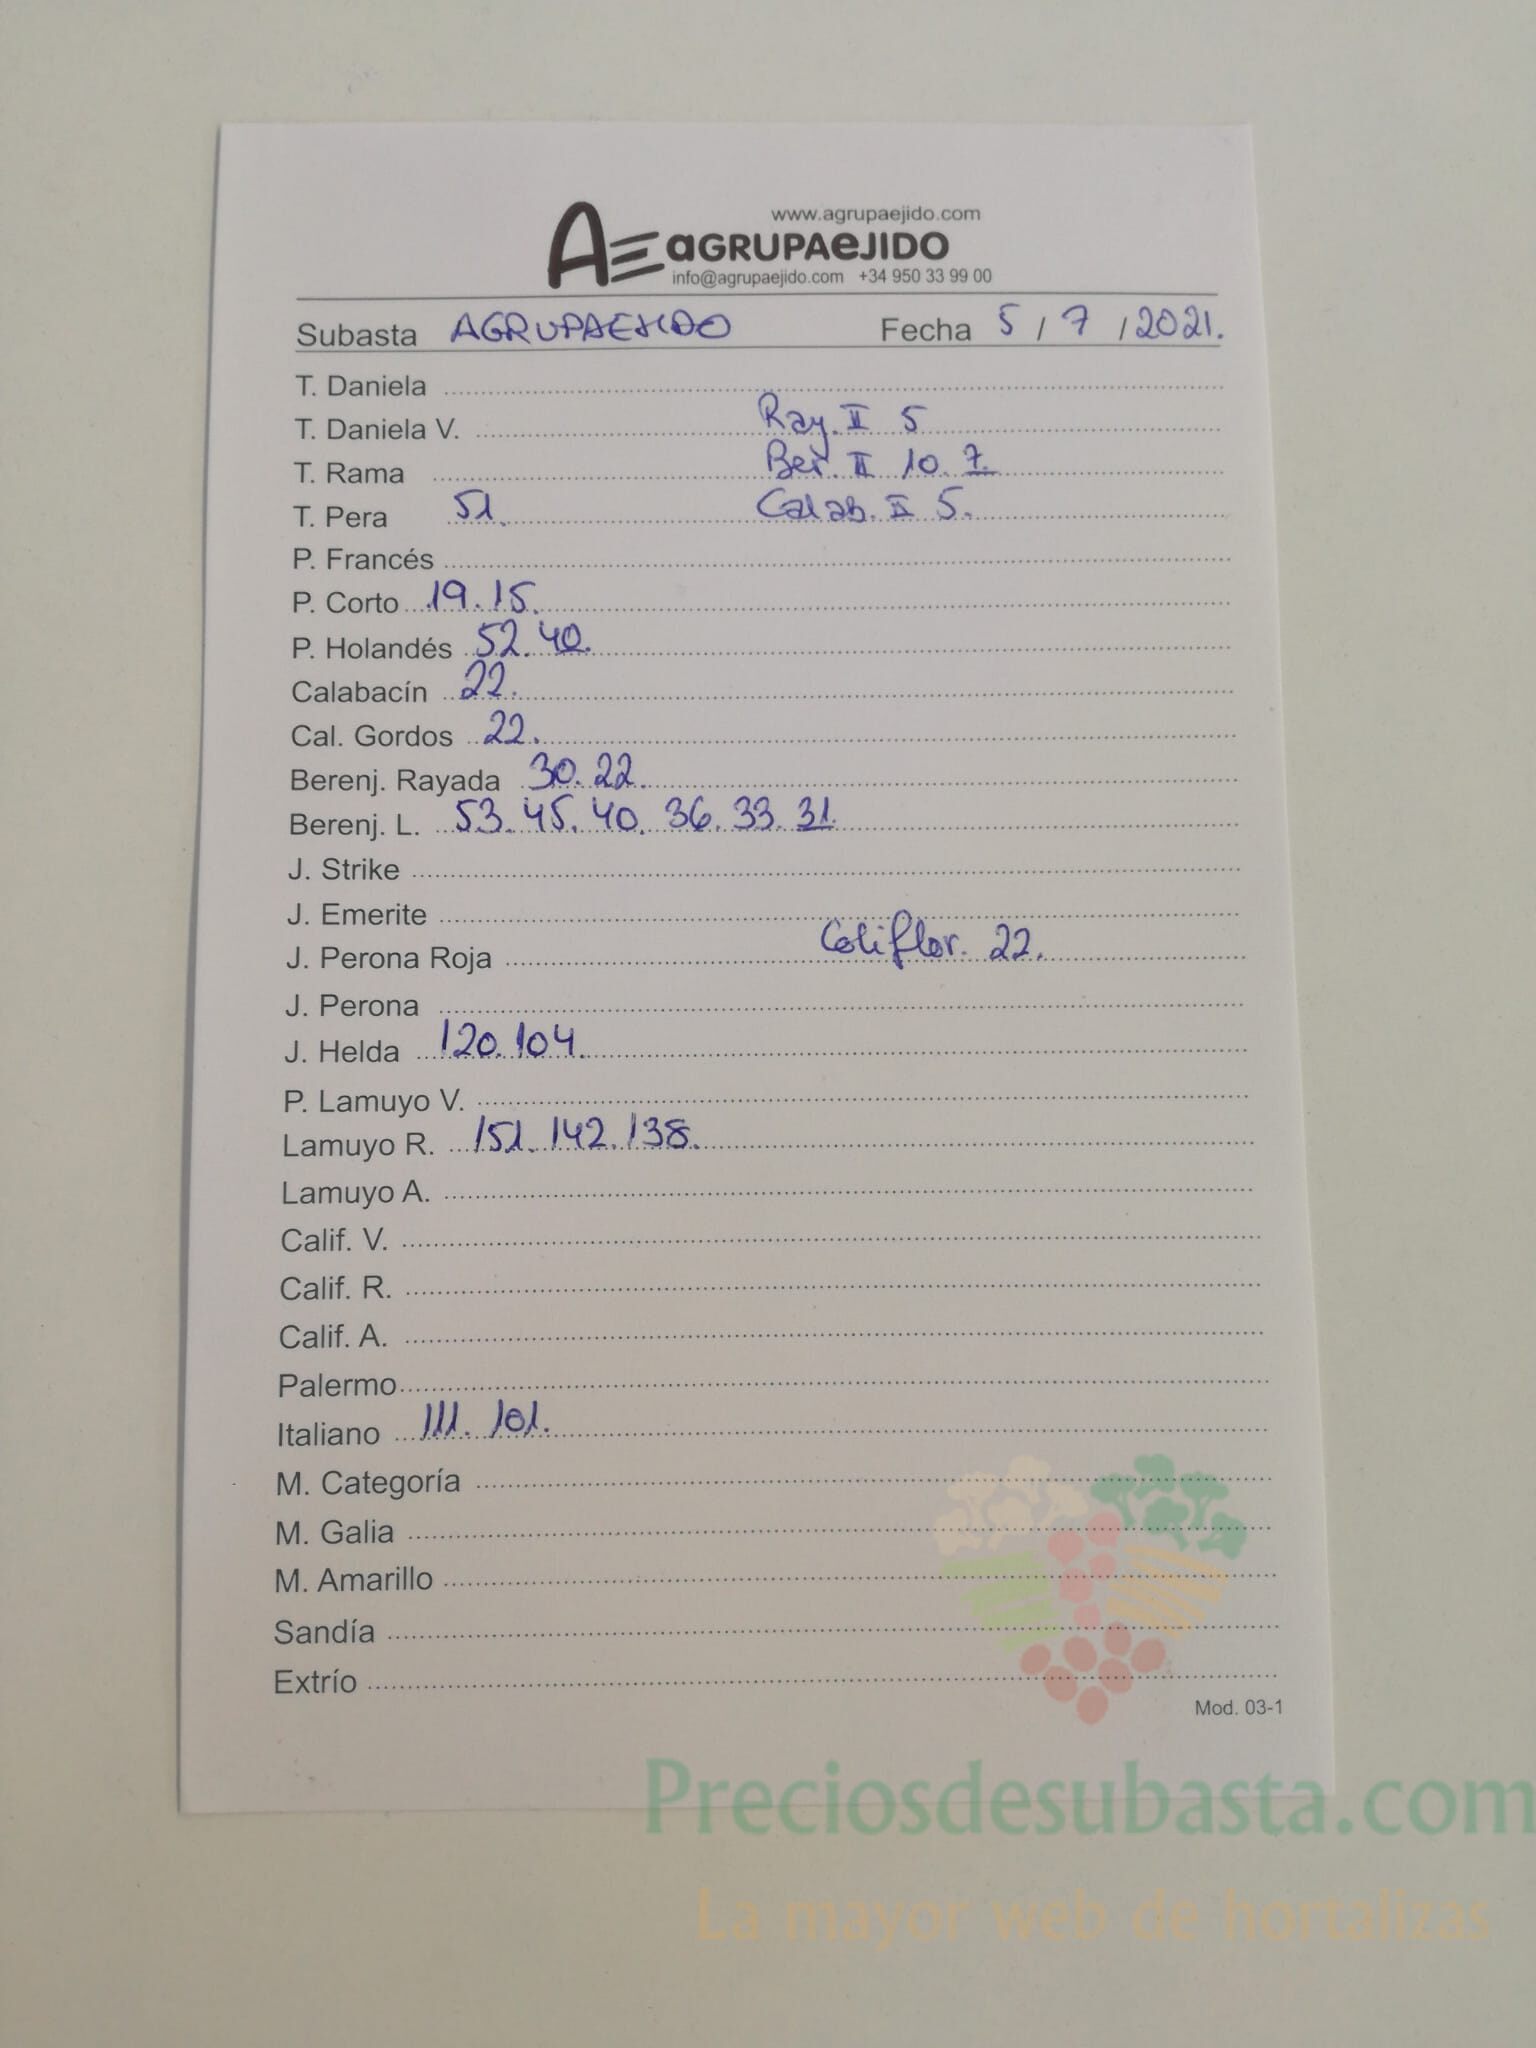 www.agrupaejido.com
AE aGRUPAeJIDO
info@agrupaejido.com +34 950 33 99 00
Subasta AGRUPAEJIDO Fecha 5 / 7 / 2021.
T. Daniela
T. Daniela V. Ray. II 5
T. Rama Ber. II 10. 7.
T. Pera 51. Calab. II 5.
P. Francés
P. Corto 19. 15.
P. Holandés 52. 40.
Calabacín 22.
Cal. Gordos 22.
Berenj. Rayada 30. 22.
Berenj. L. 53. 45. 40. 36. 33. 31.
J. Strike
J. Emerite
J. Perona Roja Coliflor. 22.
J. Perona
J. Helda 120. 104.
P. Lamuyo V.
Lamuyo R. 151. 142. 138.
Lamuyo A.
Calif. V.
Calif. R.
Calif. A.
Palermo
Italiano 111. 101.
M. Categoría
M. Galia
M. Amarillo
Sandía
Extrío
Mod. 03-1
Preciosdesubasta.com
La mayor web de hortalizas